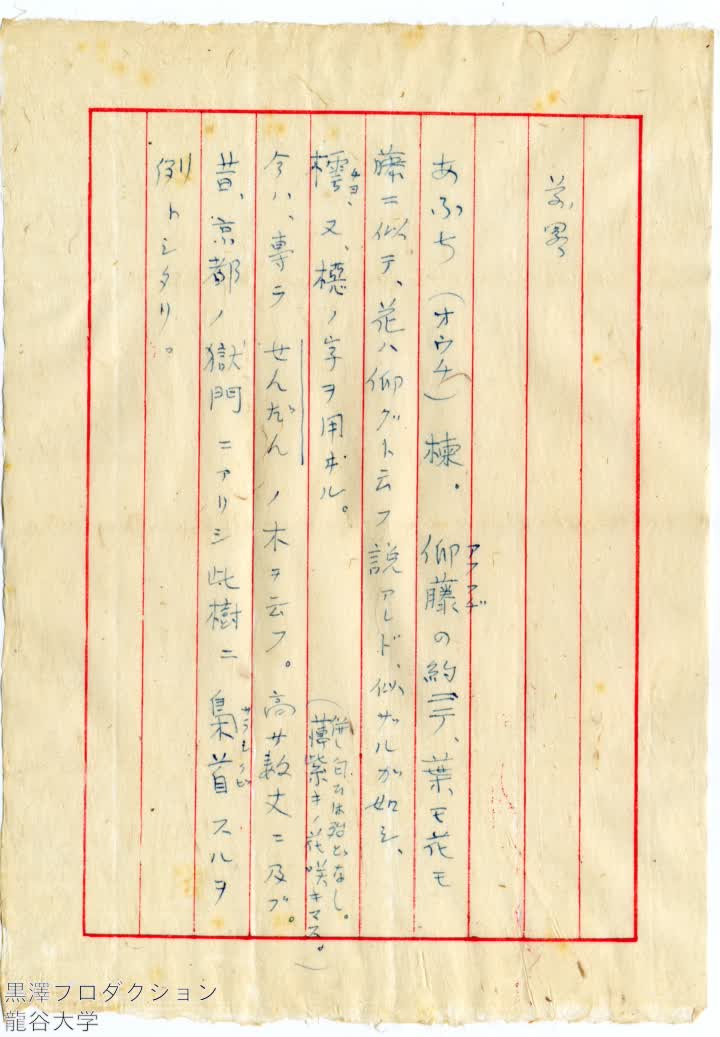 前畧
あふち（オウチ）楝。仰藤の約ニテ、葉モ花モ
アフフヂ
藤ニ似テ、花ハ仰グト云フ説アレド、似ザルガ如シ、
樗、又、檍ノ字ヲ用ヰル。
チヨ
（薄紫キノ花咲キマス。
併し匂ひは殆どなし。）
今ハ、専ラせんだんノ木ヲ云フ。高サ数丈ニ及ブ。
昔、京都ノ獄門ニアリシ此樹ニ梟首スルヲ
サラシクビ
例トシタリ。
黒澤プロダクション
龍谷大学